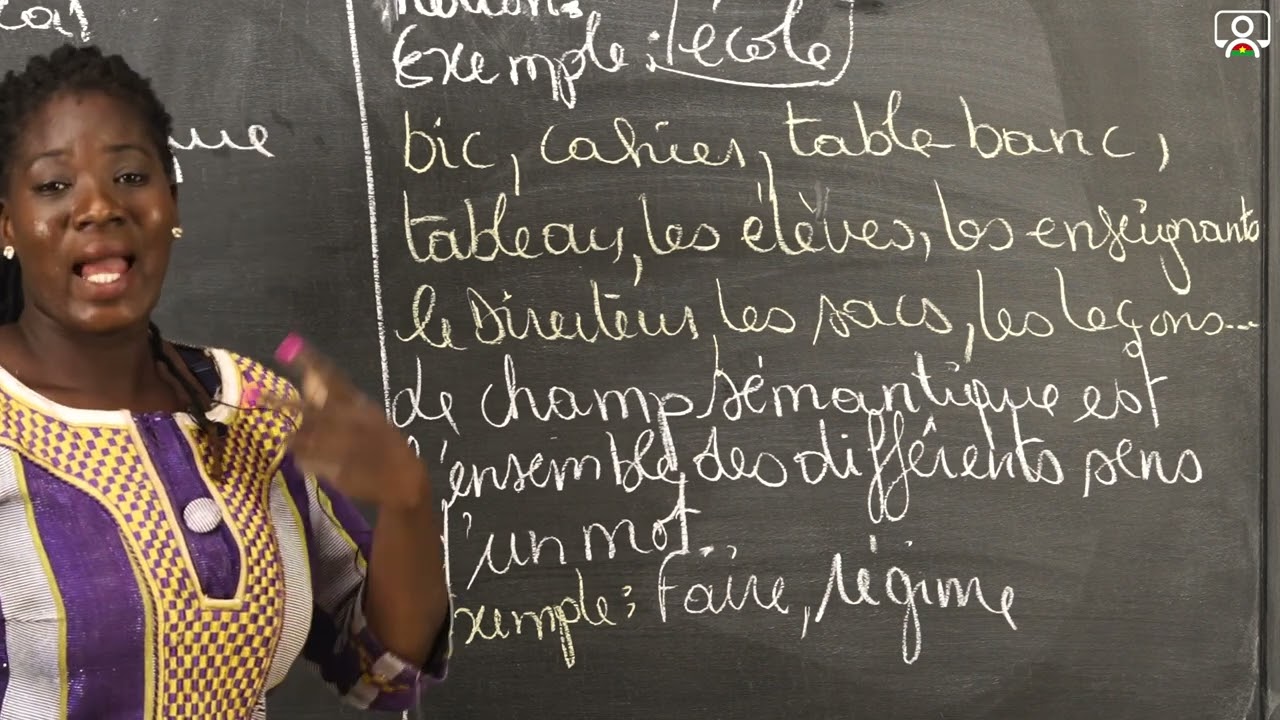 Exemple : l'école
que
bic, cahier, table banc,
tableau, les élèves, les enseignants
le directeur, les sacs, les leçons...
Le champ sémantique est
l'ensemble des différents sens
d'un mot.
Exemple : Faire, régime